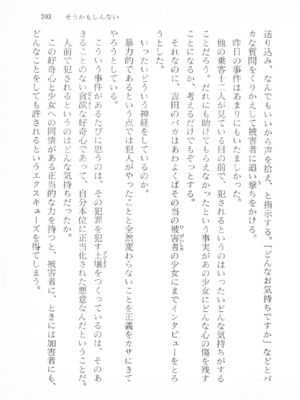 203 そうかもしんない
送り込み、なんでもいいから声を拾え、と指示する。「どんなお気持ちですか」などとバ
カな質問をくりかえして被害者に追い撃ちをかける。
昨日の事件はあまりにもいたましかった。
他の乗客十二人が見ている目の前で、犯されるというのはいったいどんな気持ちがする
ことだろう。だれにも助けてもらえなかったという事実が少女にどんな心の傷を残す
それなのに、吉田のバカはあわよくばその当の被害者の少女にまでインタビューをとろ
うとしている。
いったいどういう神経をしているのか。
暴力的であるという点では犯人がやったことと全然変わらないことを正義をカサにきて
やろうとしている。
こういう事件があるたびに思うのは、その犯罪を犯す土壌をつくっているのは、そのあ
きることのない貪欲な好奇心であって、自分本位に正当化された悪意なんだということ
人前で犯されるというのはどんな気持ちだったか。
この好奇心と少女への同情がある正当的な力を持つと、被害者に、ときには加害者にも、
どんなことをしても許されるというエクスキューズを得てしまう。